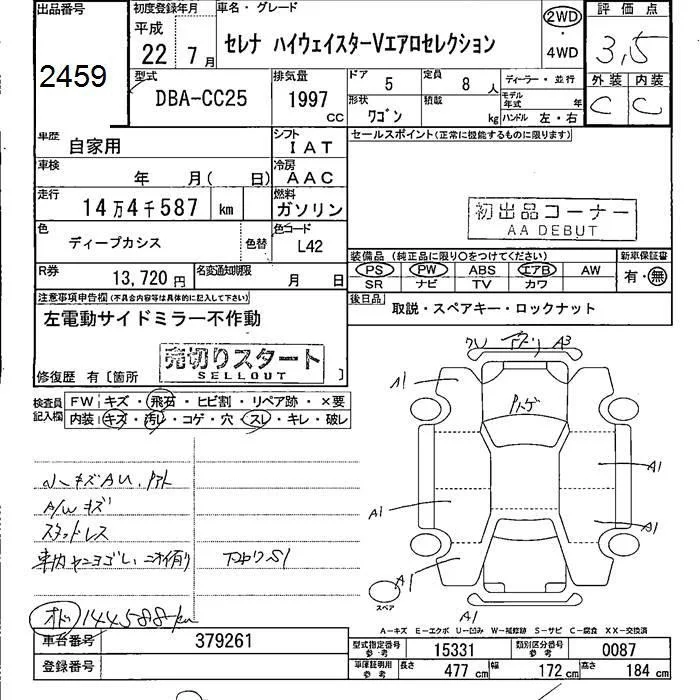 出品番号
2459
初度登録年月
平成
22年 7月
車名・グレード
セレナ ハイウェイスターVエアロセレクション
2WD
・
4WD
評価点
3.5
型式
DBA-CC25
排気量
1997
CC
ドア
5
定員
8 人
形状
ワゴン
積載
kg
ディーラー・並行
モデル年式 年
ハンドル 左・右
外装 内装
C C
車歴
自家用
シフト
IAT
セールスポイント(正常に機能するものに限ります)
車検
年 月( 日)
冷房
AAC
走行
14万4千587 km
燃料
ガソリン
初出品コーナー
AA DEBUT
色
ディープカシス
色替
色コード
L42
装備品 (純正品に限り○をつけてください)
PS PW ABS エアB AW
SR ナビ TV カワ
新車保証書
有・無
R券
13,720 円
名変通知期限
月 日
後日品
取説・スペアキー・ロックナット
注意事項申告欄(不具合内容等は具体的に記入して下さい)
左電動サイドミラー不作動
売切りスタート
SELLOUT
修復歴 有〔箇所 〕
検査員
記入欄
FW キズ・飛石・ヒビ割・リペア跡・×要
内装 キズ・汚レ・コゲ・穴・スレ・キレ・破レ
A3
A1
A1
A1
A1
A1
A1
スペア
A/W キズ
スタッドレス
車内ヤニヨゴレ、ニオイ有り
下廻りS1
オド 144588km
A-キズ E-エクボ U-凹み W-補修跡 S-サビ C-腐食 XX-交換済
車台番号
379261
登録番号
型式指定番号
参考
15331
類別区分番号
参考
0087
車庫証明用
参考
長さ 477 cm 幅 172 cm 高さ 184 cm